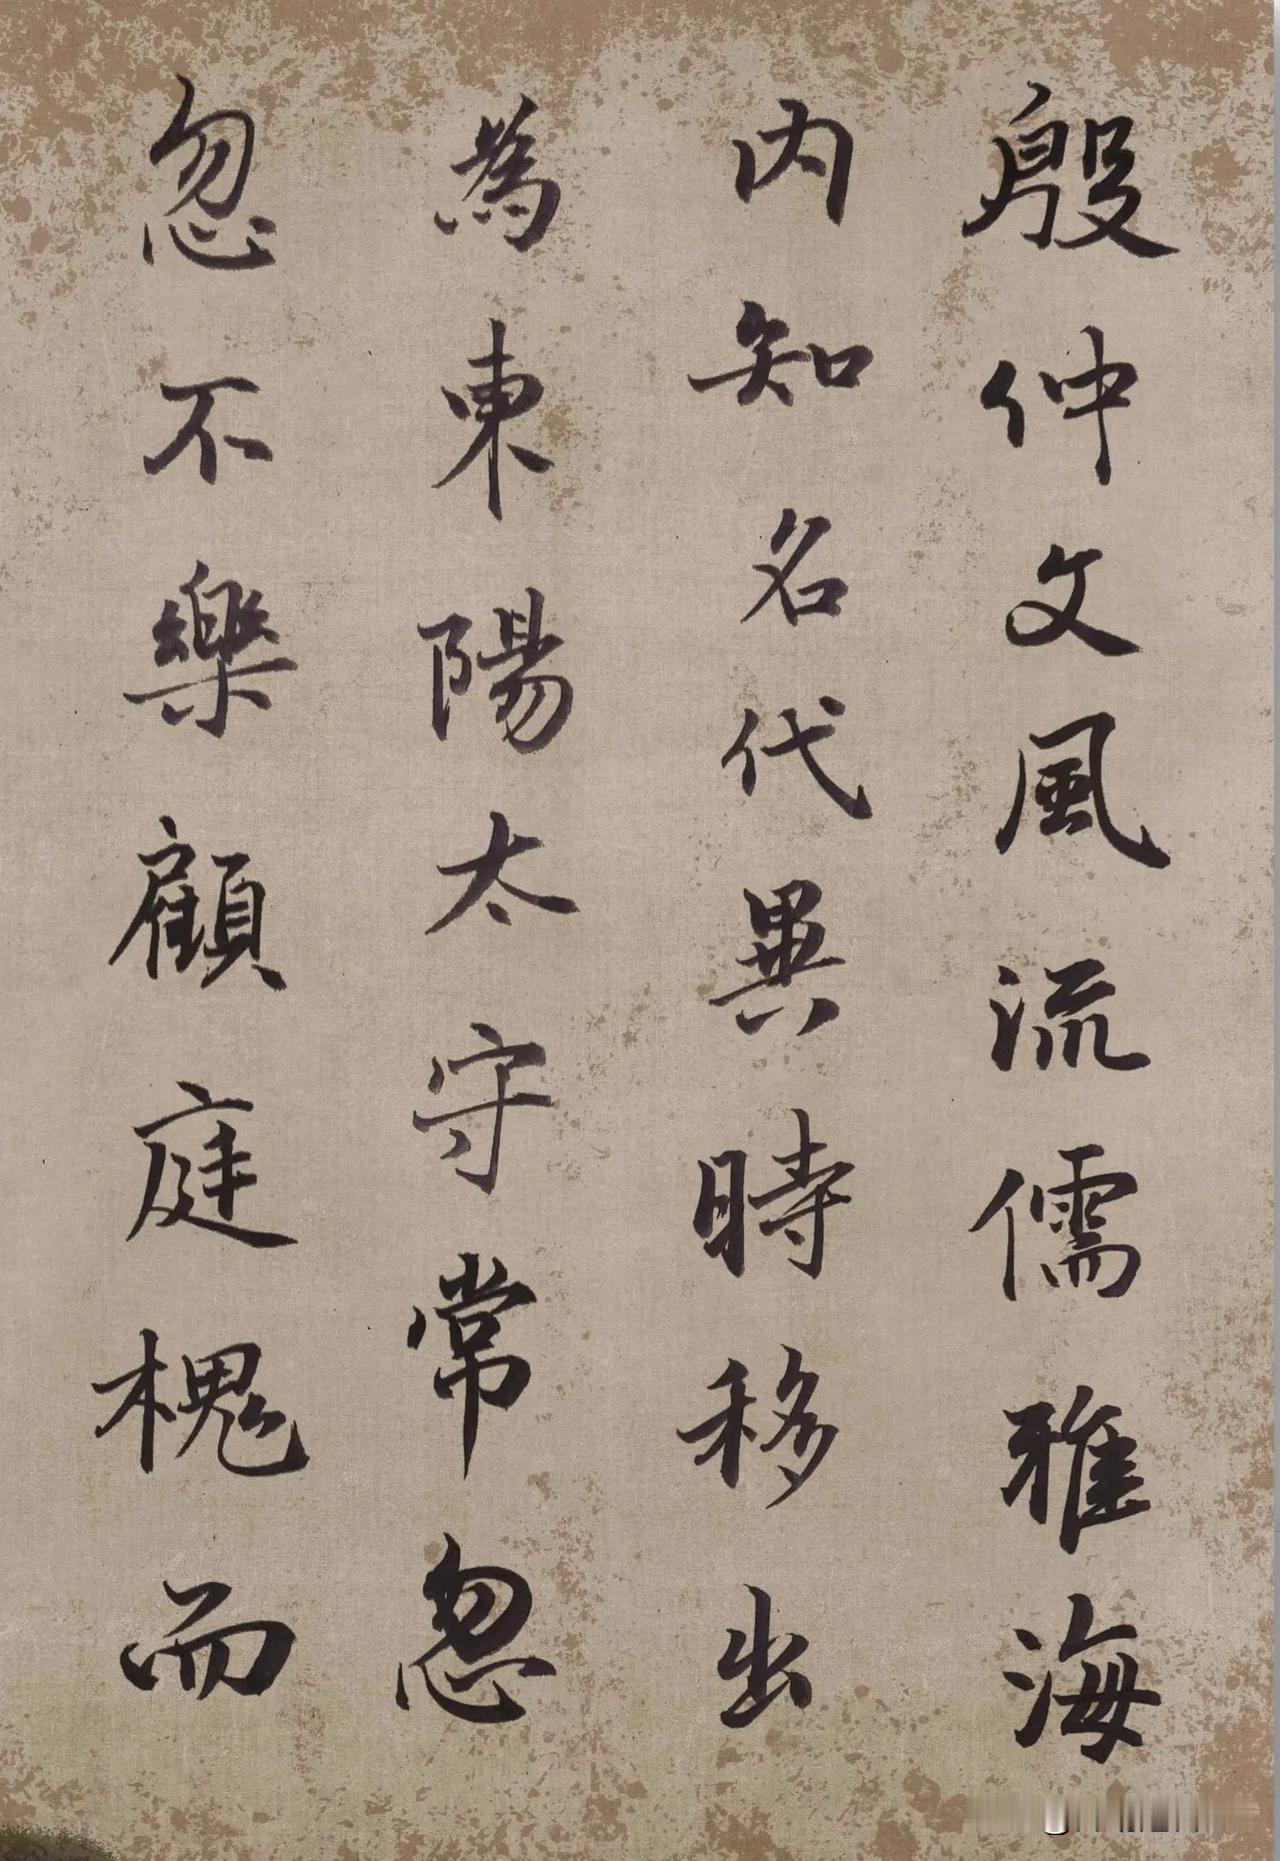 殷仲文風流儒雅海
内知名代異時移出
為東陽太守常忽
忽不樂顧庭槐而